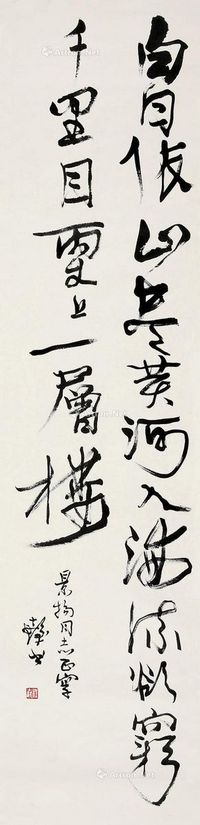 白日依山尽黄河入海流欲窮
千里目更上一層樓
景物同志正字